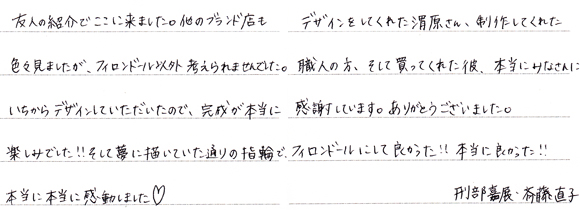 友人の紹介でここに来ました。他のブランド店も
色々見ましたが、フィロンドール以外考えられませんでした。
いちからデザインしていただいたので、完成が本当に
楽しみでした!!そして夢に描いていた通りの指輪で、
本当に本当に感動しました♡
デザインをしてくれた渭原さん、制作してくれた
職人の方、そして買ってくれた彼、本当にみなさんに
感謝しています。ありがとうございました。
フィロンドールにして良かった!!本当に良かった!!
刑部嘉展・斉藤直子